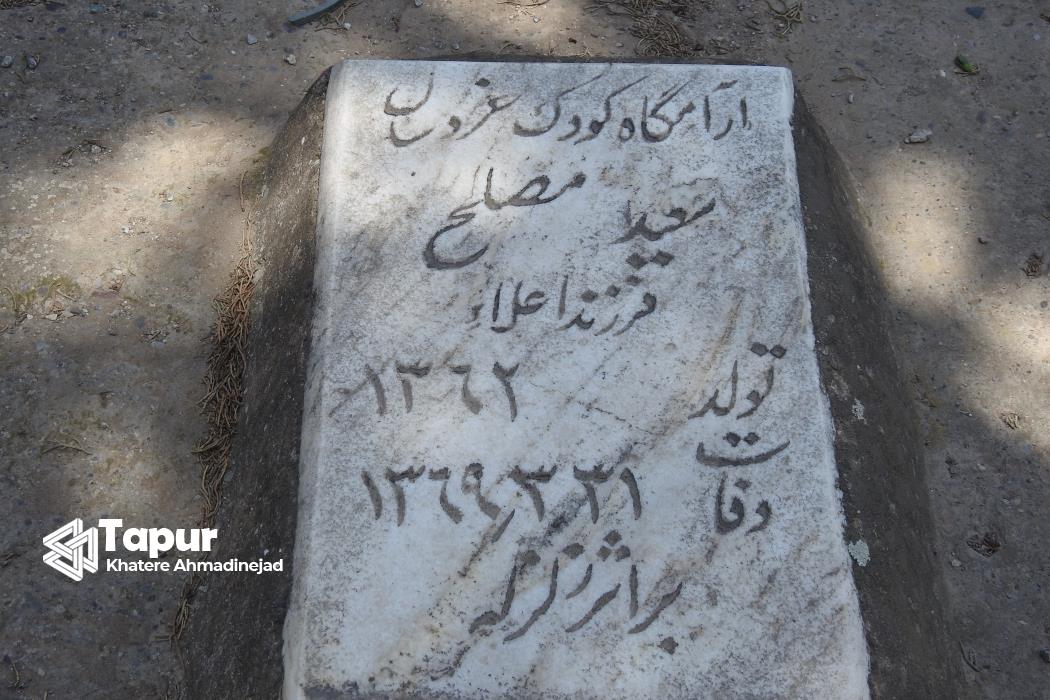 ارآمگاه کودک عزدسان
سعید مصلح
فرزند اعلاء
تولد ۱۳۶۲
وفات ۱۳۶۹/۳/۳۱
براثر زلزله
Tapur
Khatere Ahmadinejad